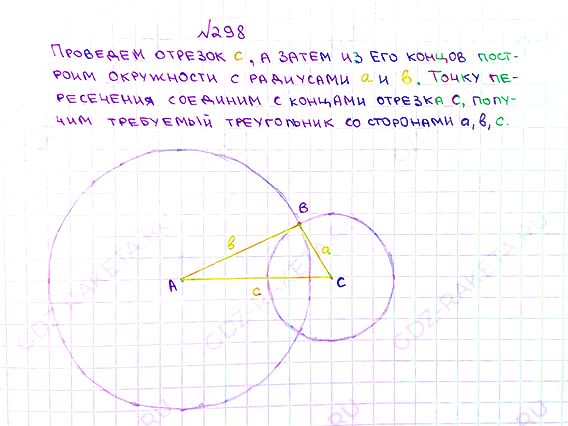 №298
ПРОВЕДЕМ ОТРЕЗОК с, А ЗАТЕМ ИЗ ЕГО КОНЦОВ ПОСТ-
РОИМ ОКРУЖНОСТИ С РАДИУСАМИ а И в. ТОЧКУ ПЕ-
РЕСЕЧЕНИЯ СОЕДИНИМ С КОНЦАМИ ОТРЕЗКА С, ПОЛУ-
ЧИМ ТРЕБУЕМЫЙ ТРЕУГОЛЬНИК СО СТОРОНАМИ а, в, с.
B
в
a
A
c
C
GDZ-RAKETA.RU
GDZ-RAKETA.RU
GDZ-RAKETA.RU